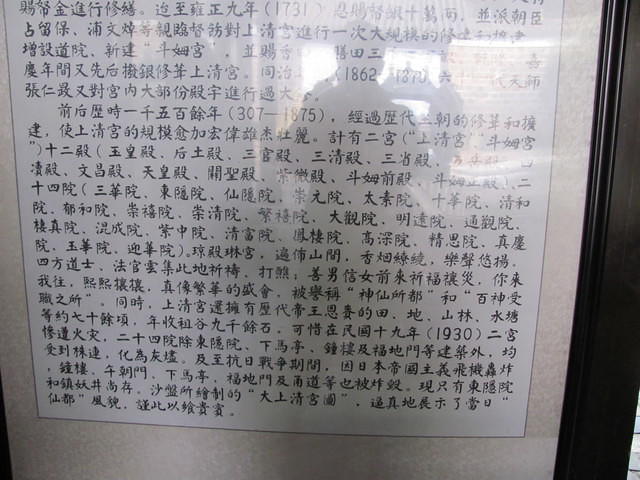 賜帑金進行修繕。迨至雍正九年(1731)恩賜帑銀十萬兩,並派朝臣
占留保、浦文焯等親臨督蒞對上清宮進行一次大規模的修建和擴建
增設道院、新建“斗姆宮”,並賜香田
慶年間又先后撥銀修葺上清宮。同治 (1862-1870)六十一代天師
張仁晸又對宮內大部份殿宇進行過大修。
前后歷時一千五百餘年(307-1875),經過歷代王朝的修葺和擴
建,使上清宮的規模愈加宏偉雄杰壯麗。計有二宮(“上清宮”“斗姆宮
”)十二殿(玉皇殿、后土殿、三官殿、三清殿、三省殿、五岳殿、四
瀆殿、文昌殿、天皇殿、關聖殿、紫微殿、斗姆前殿、斗姆正殿)、二
十四院(三華院、東隱院、仙隱院、崇元院、太素院、十華院、清和
院、郁和院、崇禧院、崇清院、繁禧院、大觀院、明遠院、通觀院、
棲真院、混成院、紫中院、清富院、鳳棲院、高深院、精思院、真慶
院、玉華院、迎華院)。琼殿琳宮,遍佈山間,香烟繞繞,樂聲悠揚,
四方道士、法官雲集此地祈禱、打醮;善男信女前來祈福禳災,你來
我往,熙熙攘攘,真像繁華的盛會,被譽稱“神仙所都”和“百神受
職之所”。同時,上清宮還擁有歷代帝王恩賚的田、地、山林、水塘
等約七十餘頃,年收租谷九千餘石。可惜在民國十九年(1930)二宮
慘遭火灾,二十四院除東隱院、下馬亭、鐘樓及福地門等建築外,均
受到株連,化為灰墟。及至抗日戰爭期間,因日本帝國主義飛機轟炸
,鐘樓、午朝門、下馬亭,福地門及甬道等也被炸毀。現只有東隱院
和鎮妖井尚存。沙盤所繪制的“大上清宮圖”,逼真地展示了當日“
仙都”風貌,謹此以飨貴賓。